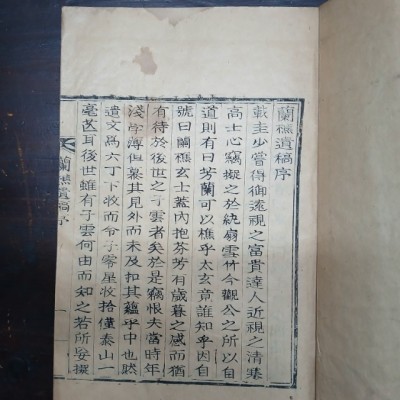 蘭樵遺稿序
載圭少嘗得御遠視之富貴達人近視之清寒
高士心竊擬之於紈扇雲竹今觀公之所以自
道則有曰芳蘭可以樵乎太玄竟誰知乎因自
號曰蘭樵玄士蓋內抱芬芳有歲暮之感而猶
有待於後世之子雲者矣於是竊恨夫當時年
淺学薄但慕其見外而未及扣其蘊乎中也昳
遺文爲六丁下收而令子零星收拾僅泰山一
毫芒耳後世雖有子雲何由而知之若所妥撰
蘭樵遺稿序
一